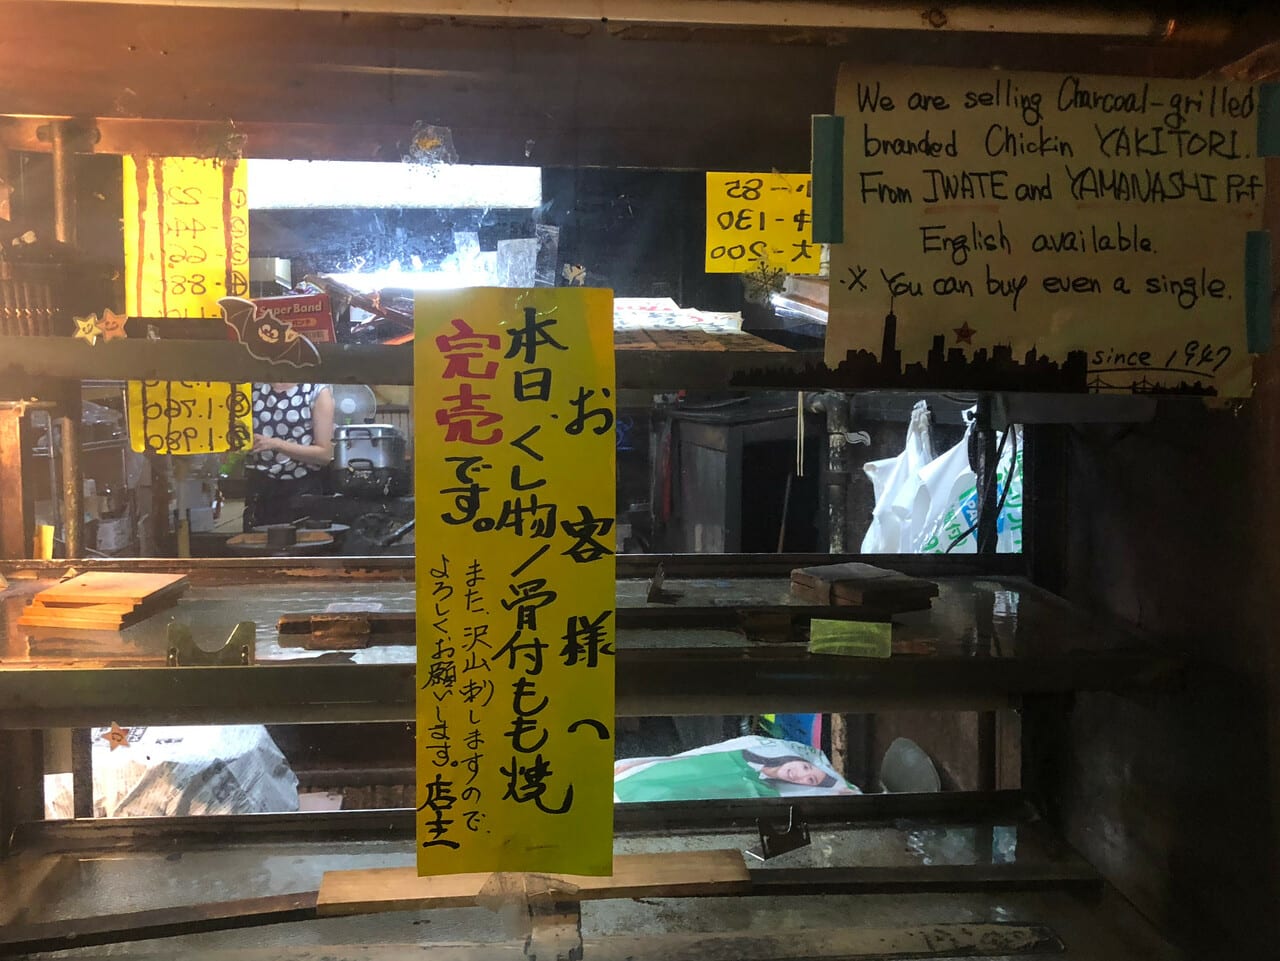 We are selling Charcoal-grilled
branded Chickin YAKITORI.
From IWATE and YAMANASHI Prf
English available.
※ You can buy even a single.
since 1947
お客様へ
本日、くし物/骨付もも焼
完売です。
また、沢山刺しますので、
よろしくお願いします。店主
小-85
中-130
大-200
①-22
②-44
③-66
④-88
Super Band